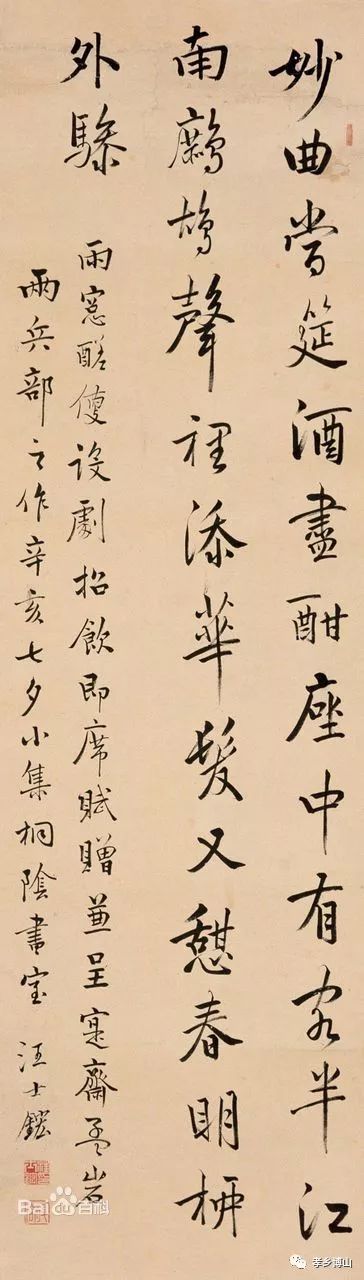 妙曲當筵酒盡酣座中有客半江
南鷓鴣聲裡添華髮又憩春明柳
外驂
雨窓醝使設劇招飲即席賦贈兼呈寔齋孟岩
兩兵部之作辛亥七夕小集桐陰書室 汪士鋐
Bai百科
孝乡博山